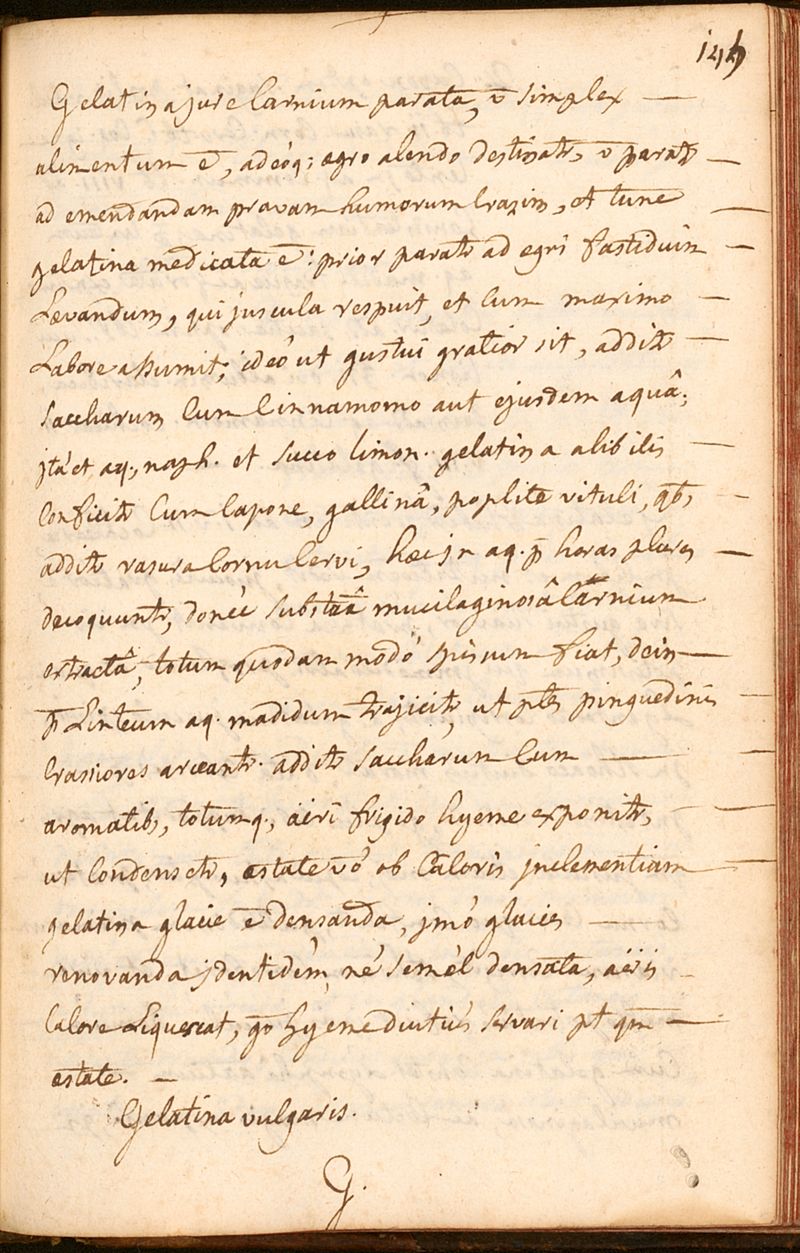 149
Gelatina jure Carnium parata, v̄ simplex —
alimentum ē, adeóq; ægro alendo destinatr, v̄ paratr —
ad emendandam pravam humorum Crasim, et tunc —
gelatina medicata ē: prior paratr ad ægri fastidium —
Lævandum, qui juscula respuit, et Cum maximo —
Labore assumit; ideó ut gustui gratior sit, additr —
saccharum Cum Cinnamomo aut ejusdem aquâ;
jtá et aq; naph. et succo limon. gelatina alibilis —
Conficitr Cum Capone, gallinâ, poplite vituli, qb, —
additr rasura Cornu Cervi, hæc jn aq. p̄ horas plures —
decoquuntr, donéc substāâ mucilaginosâ Carnium
extractâ, totum quodam modó spissum fiat, dein —
p̄ Linteum aq. madidum trajicitr, ut ptes pinguedinis —
Crassiores arceantr. additr saccharum Cum —
aromatib, totumq, aëri frigido hyeme exponitr, —
ut Condensetr, æstate vó ob Caloris jnclementiam —
gelatina glacie ē densanda, jmó glacies —
renovanda jdentidém, né semél densata, aëris —
Calore Liquescat, go hyeme diutiús servari pt qm —
æstate. —
Gelatina vulgaris.
G.